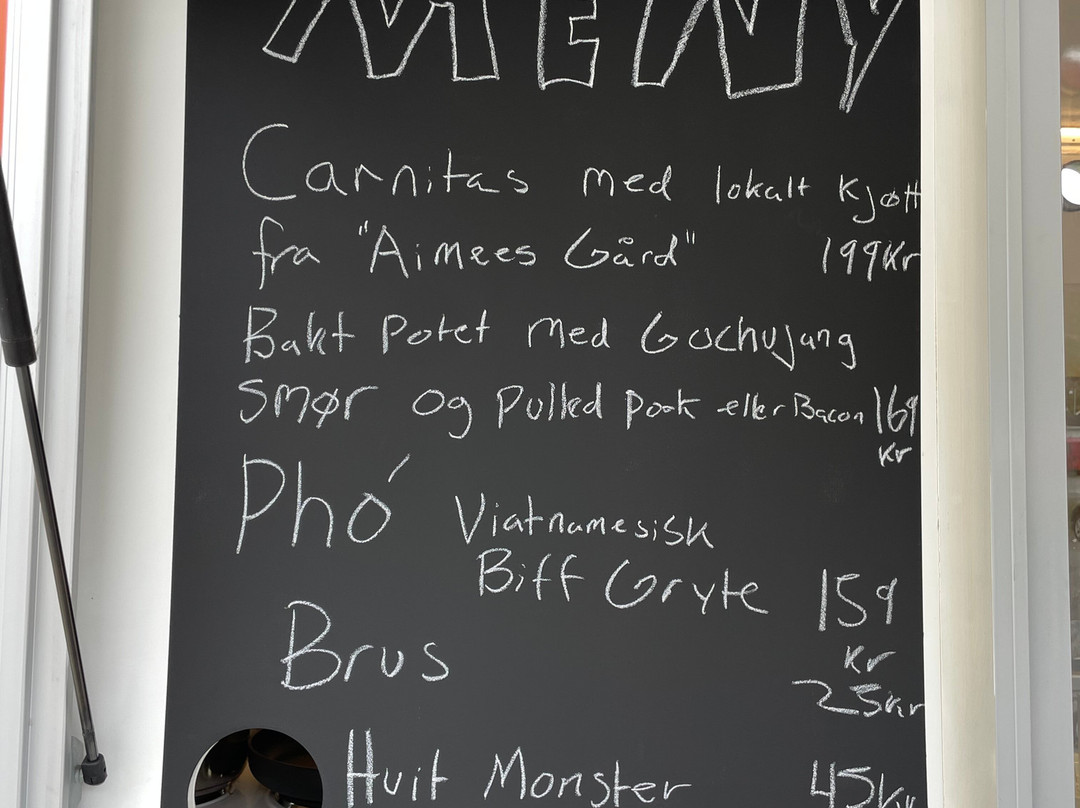 MENY
Carnitas med lokalt Kjøtt
fra "Aimees Gård" 199Kr
Bakt Potet med Gochujang
Smør og Pulled pork eller Bacon 169
Kr
Phó Viatnamesisk
Biff Gryte 159
Kr
Brus 25Kr
Hvit Monster 45Kr